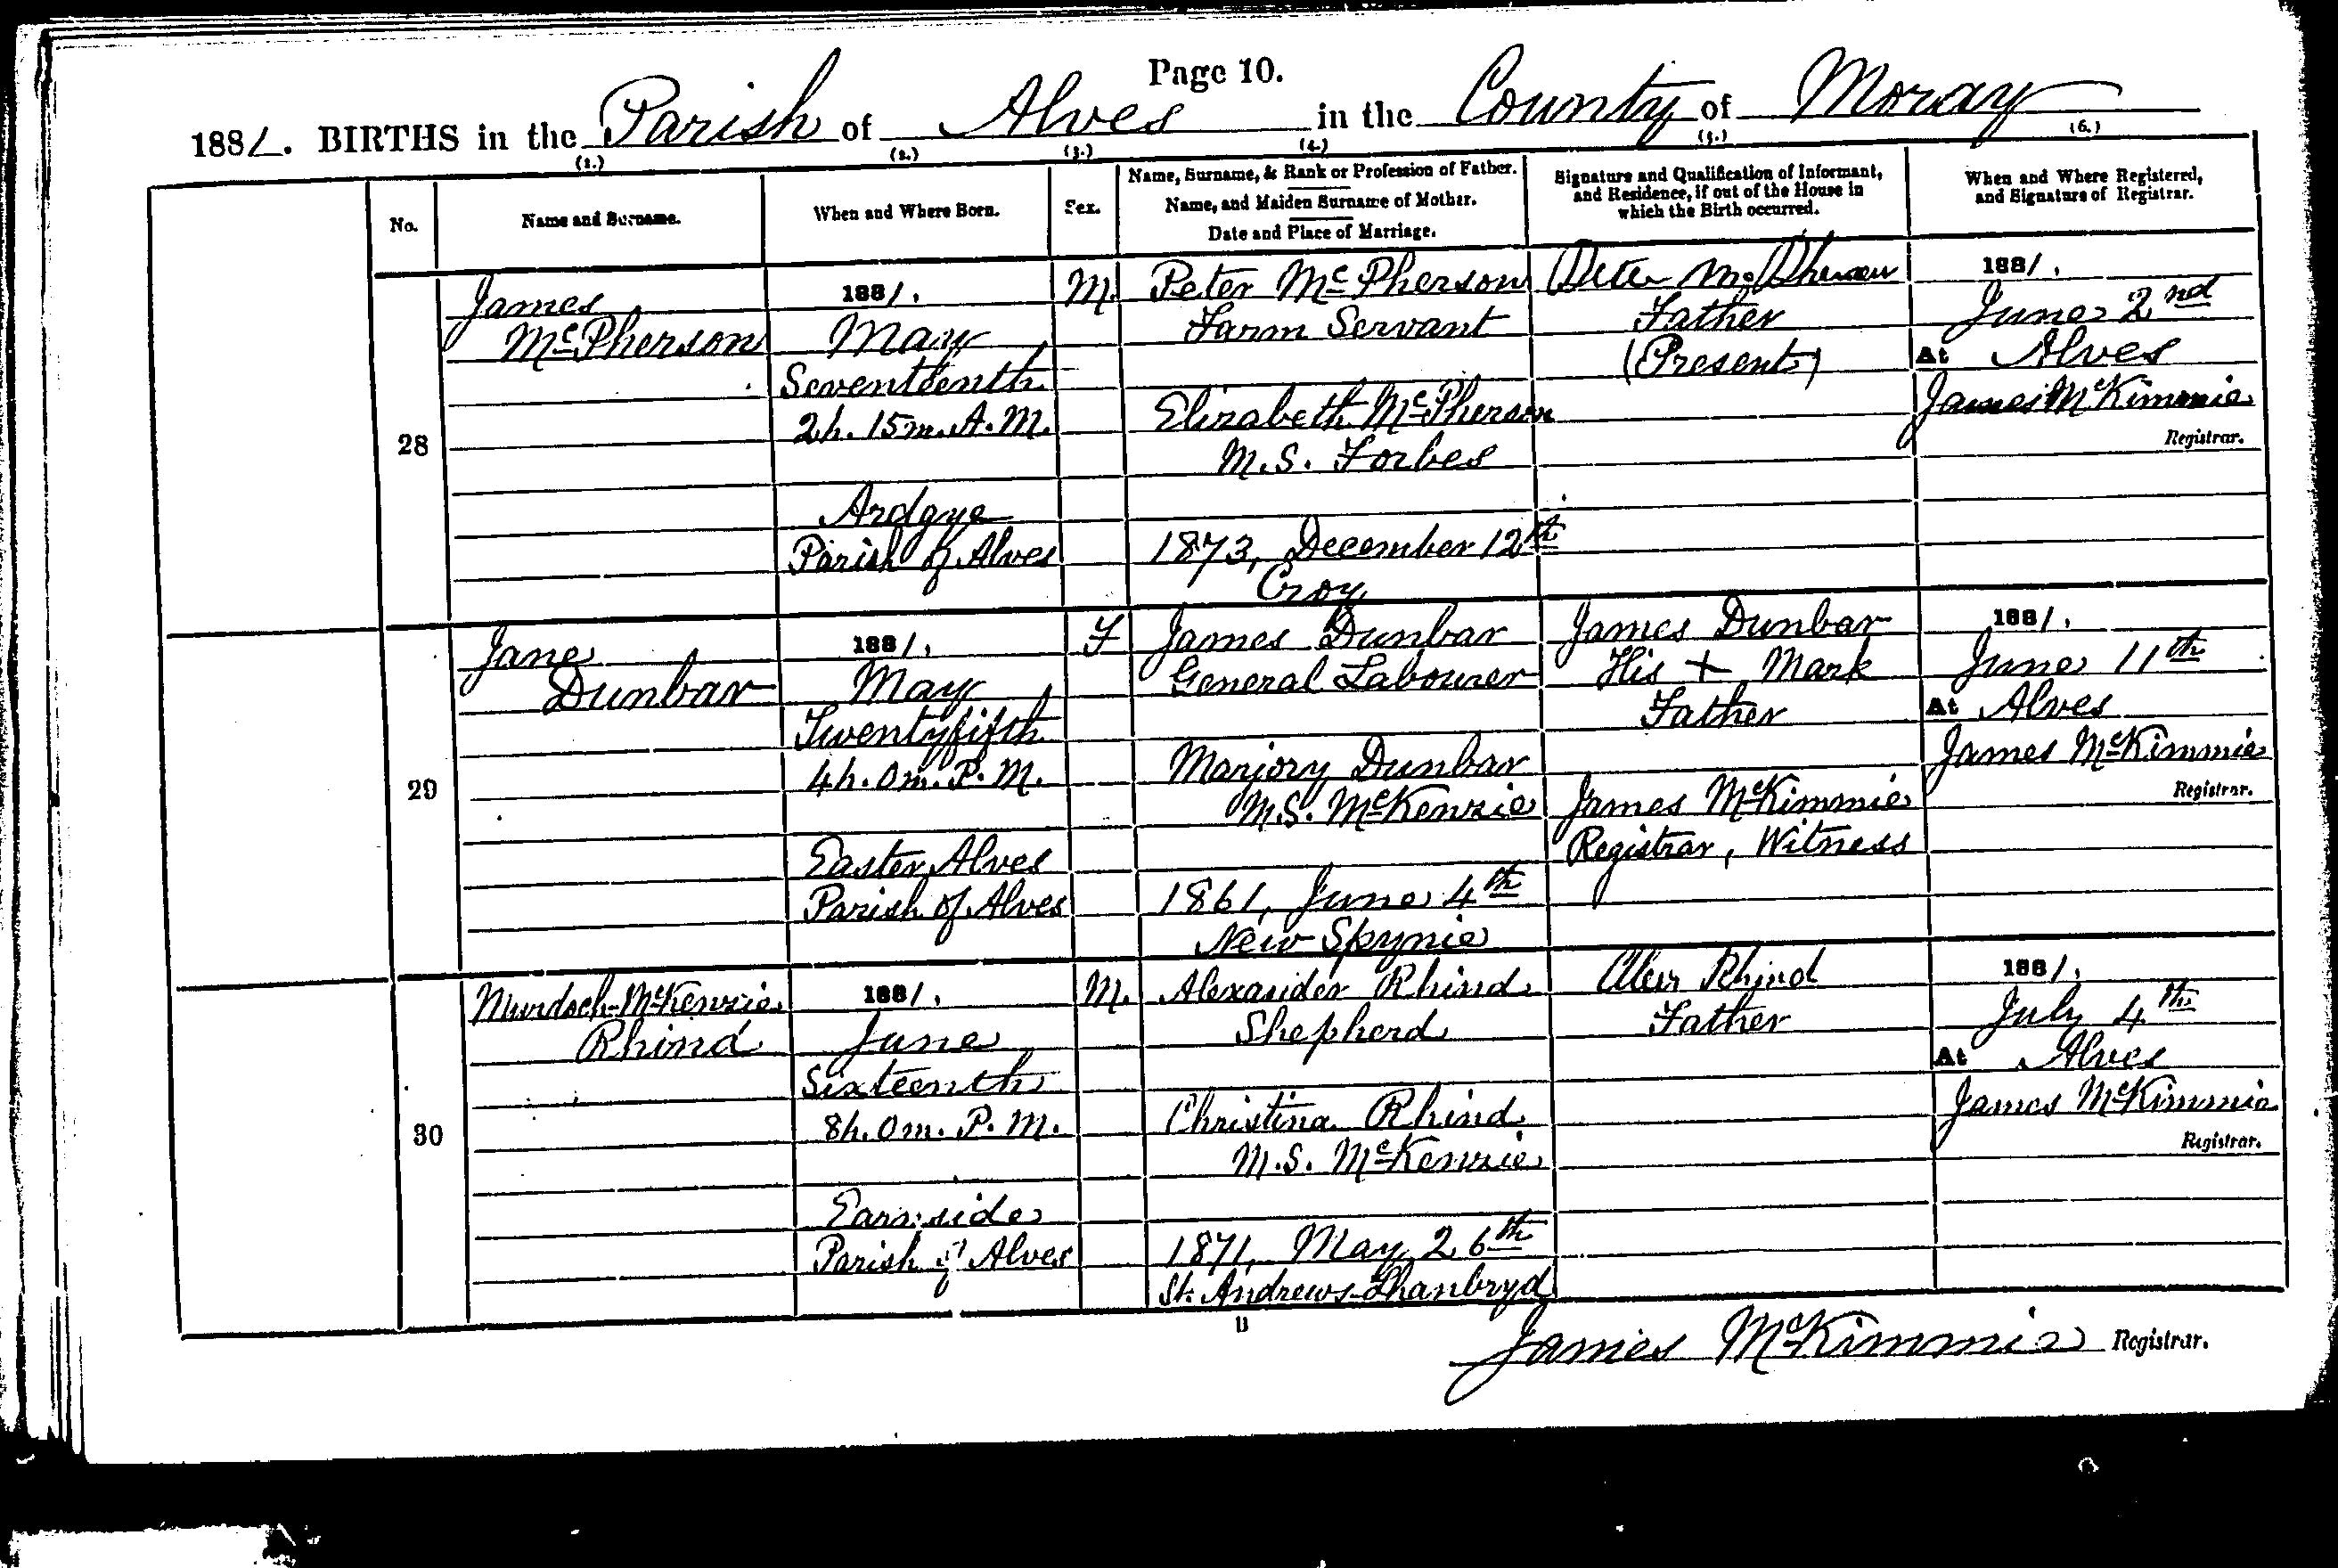 Page 10.
1881. BIRTHS in the Parish of Alves in the County of Moray
(1.) (2.) (3.) (4.) (5.) (6.)
No.
Name and Surname.
When and Where Born.
Sex.
Name, Surname, & Rank or Profession of Father.
Name, and Maiden Surname of Mother.
Date and Place of Marriage.
Signature and Qualification of Informant,
and Residence, if out of the House in
which the Birth occurred.
When and Where Registered,
and Signature of Registrar.
28
James
McPherson
1881.
May
Seventeenth
2h. 15m. A.M.
Ardgye
Parish of Alves
M.
Peter McPherson
Farm Servant
Elizabeth McPherson
M.S. Forbes
1873, December 12th
Croy
Peter McPherson
Father
(Present)
1881.
June 2nd
At Alves
James McKimmie
Registrar.
29
Jane
Dunbar
1881.
May
Twentyfifth
4h. 0m. P.M.
Easter Alves
Parish of Alves
F
James Dunbar
General Labourer
Marjory Dunbar
M.S. McKenzie
1861, June 4th
New Spynie
James Dunbar
His + Mark
Father
James McKimmie
Registrar, Witness
1881.
June 11th
At Alves
James McKimmie
Registrar.
30
Murdoch McKenzie
Rhind
1881.
June
Sixteenth
8h. 0m. P.M.
Earnside
Parish of Alves
M.
Alexander Rhind
Shepherd
Christina Rhind
M.S. McKenzie
1871, May 26th
St. Andrews-Lhanbryd
Alexr Rhind
Father
1881.
July 4th
At Alves
James McKimmie
Registrar.
James McKimmie Registrar.